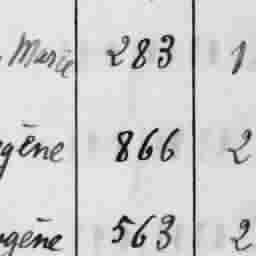 Marie 283 1
gène 866 2
gène 563 2